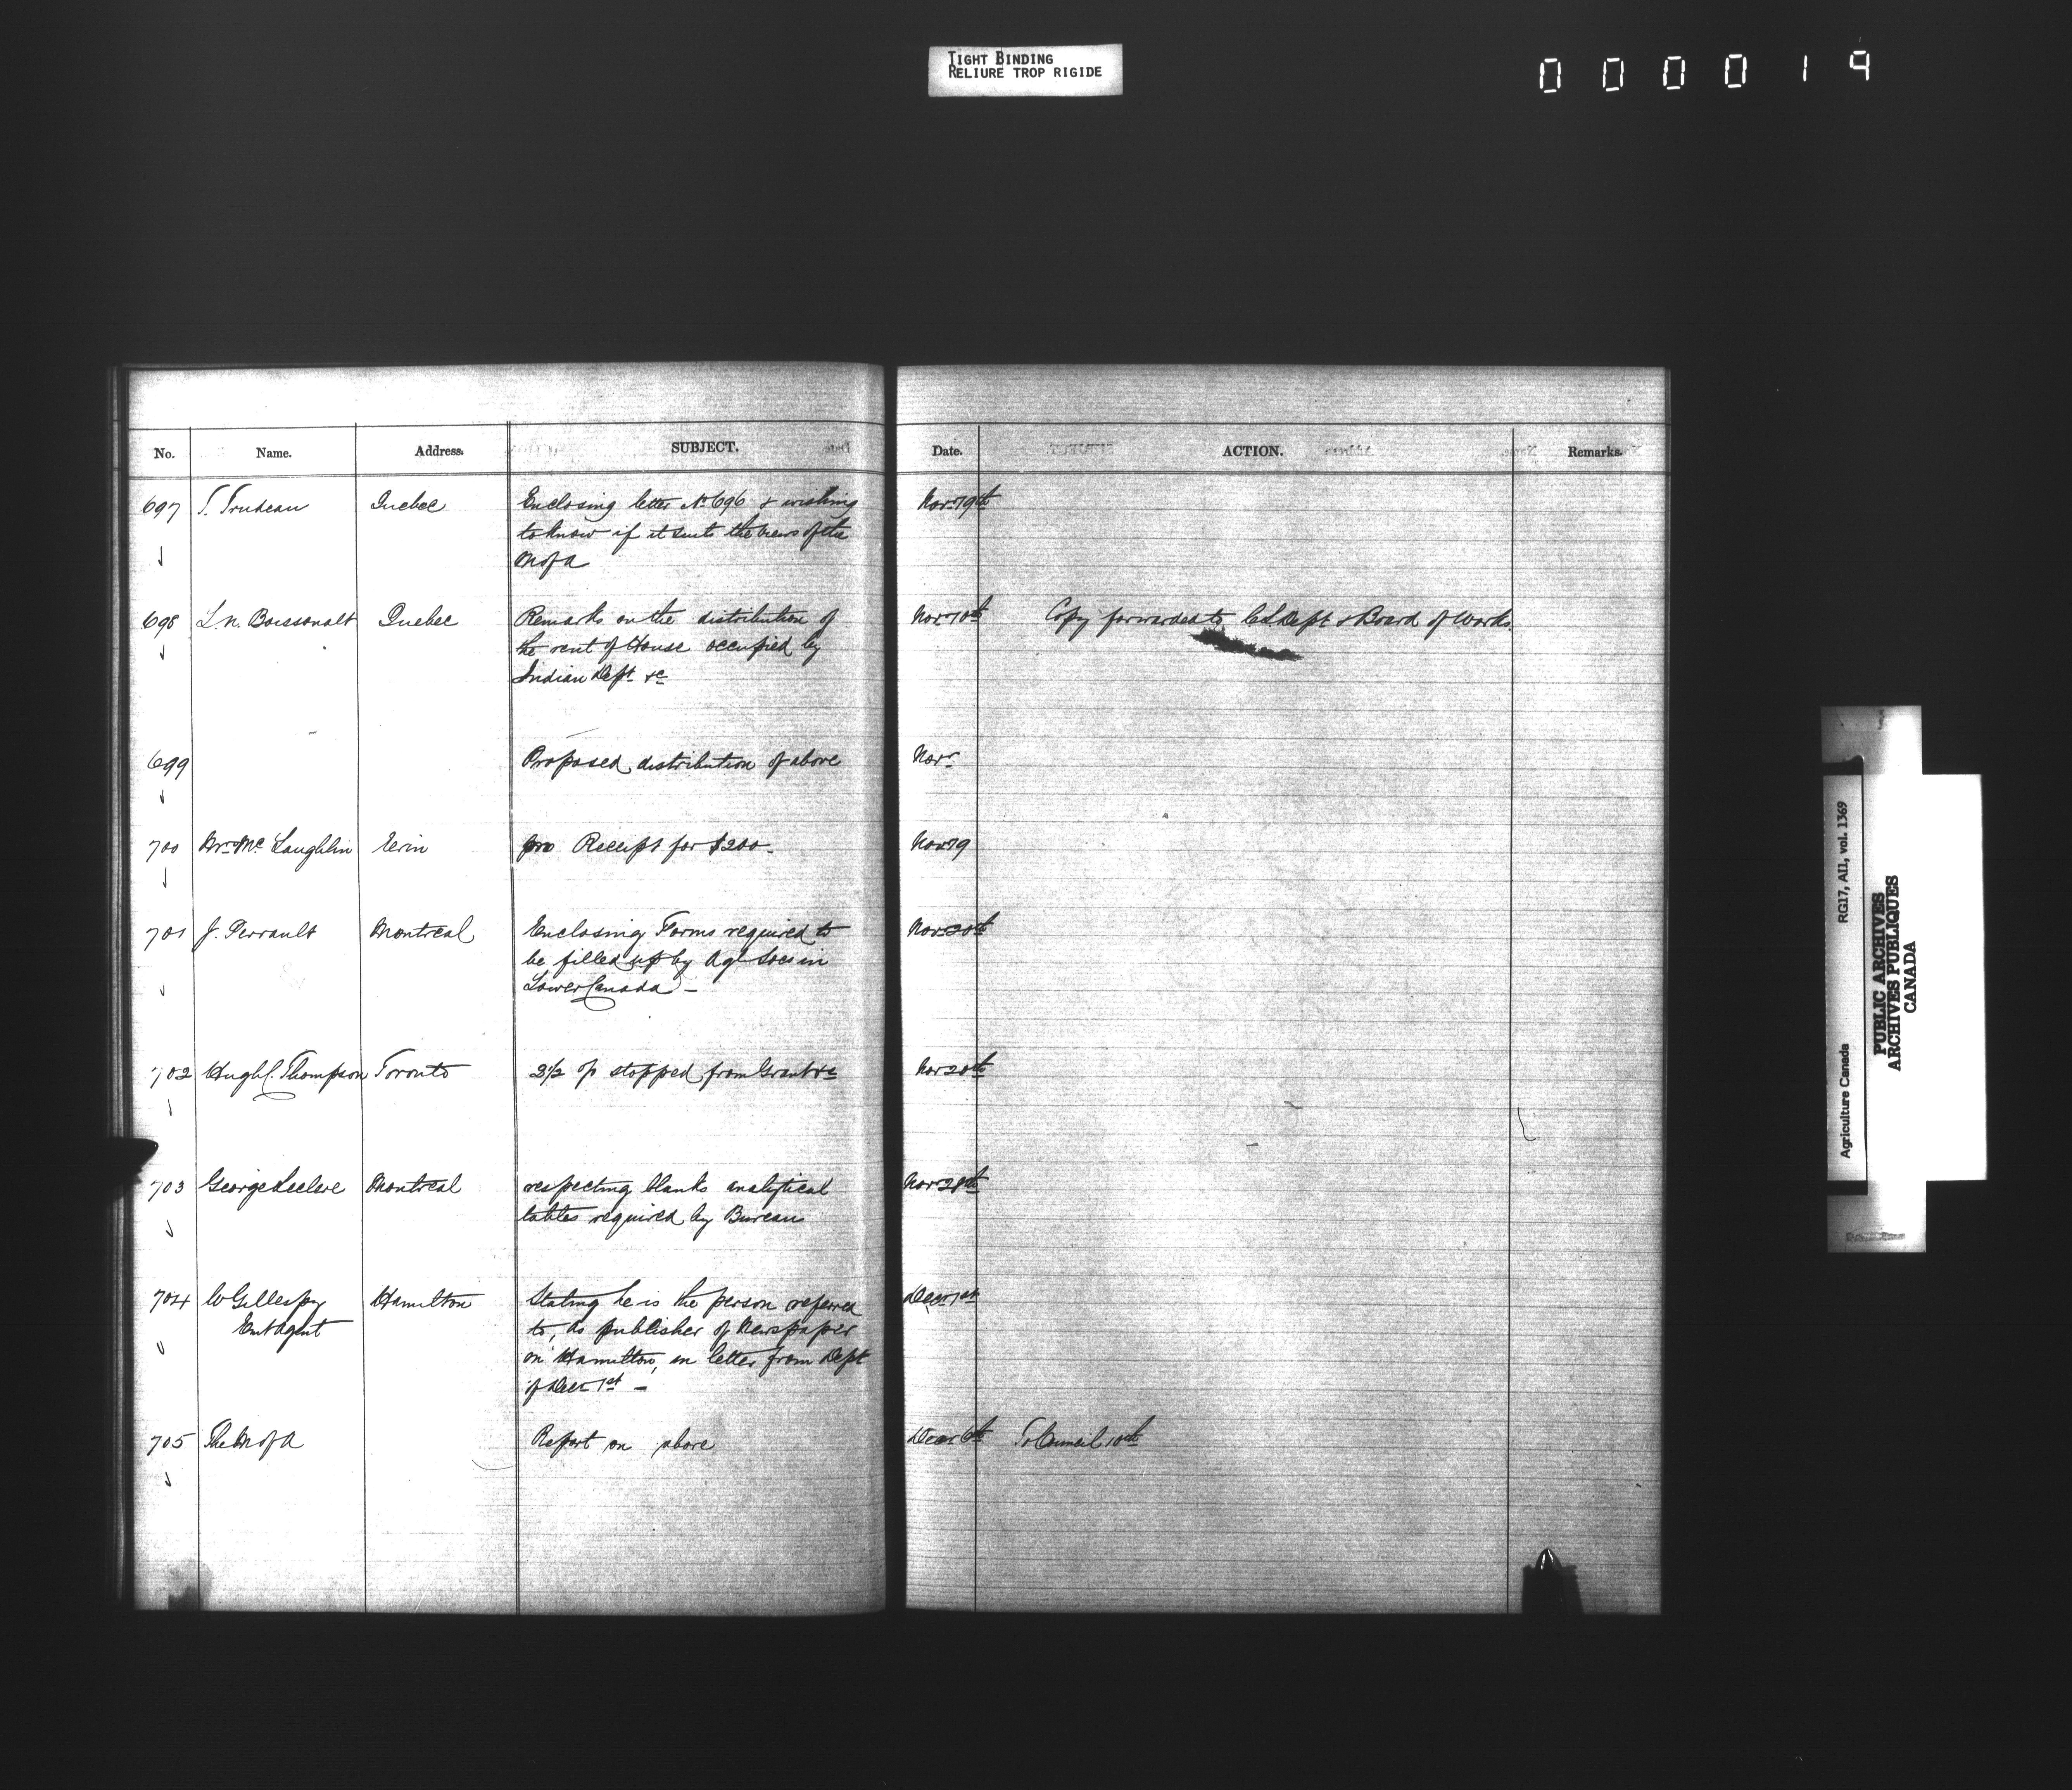 TIGHT BINDING
RELIURE TROP RIGIDE
000019
No. Name. Address. SUBJECT. Date. ACTION. Remarks.
697 T. Trudeau Quebec Enclosing letter No 696 & wishing Novr 19th
to know if it suits the views of the
M of A
698 L. N. Boissonalt Quebec Remarks on the distribution of Novr 10th Copy forwarded to C L Dept & Board of Works.
the rent of House occupied by
Indian Dept. &c
699 Proposed distribution of above Novr
700 Mc Laughlin Erin pro Receipt for $200- Novr 19
701 J. Perrault Montreal Enclosing Forms required to Novr 20th
be filled up by Agl Socs in
Lower Canada -
702 Hugh C. Thompson Toronto 3½ op stopped from Grant &c Nov 20th
703 George Leclere Montreal respecting blanks analytical Nov 28th
tables required by Bureau
704 W Gillespy Hamilton Stating he is the person referred Decr 1st
Emt Agent to, as publisher of Newspaper
on Hamilton, in letter from Dept
of Decr 1st -
705 The M of A Report on above Decr 6th To Council 10th
Agriculture Canada RG17, AII, vol. 1369
PUBLIC ARCHIVES
ARCHIVES PUBLIQUES
CANADA